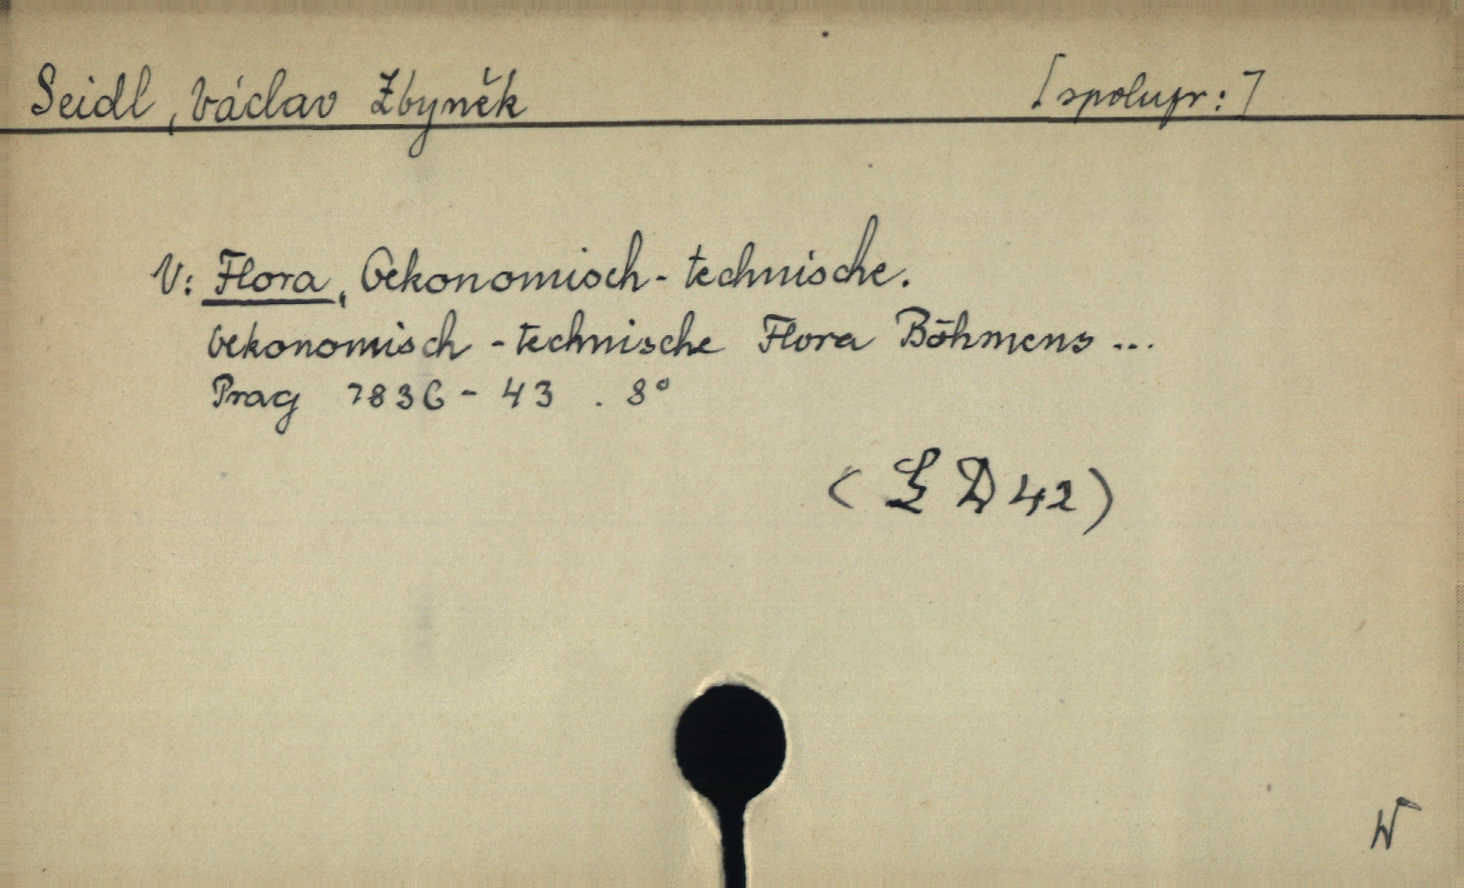 Seidl, Václav Zbyněk [spolupr:]
V: Flora, Oekonomisch-technische.
Oekonomisch-technische Flora Böhmens...
Prag 1836-43. 8°
(L D 42)
W